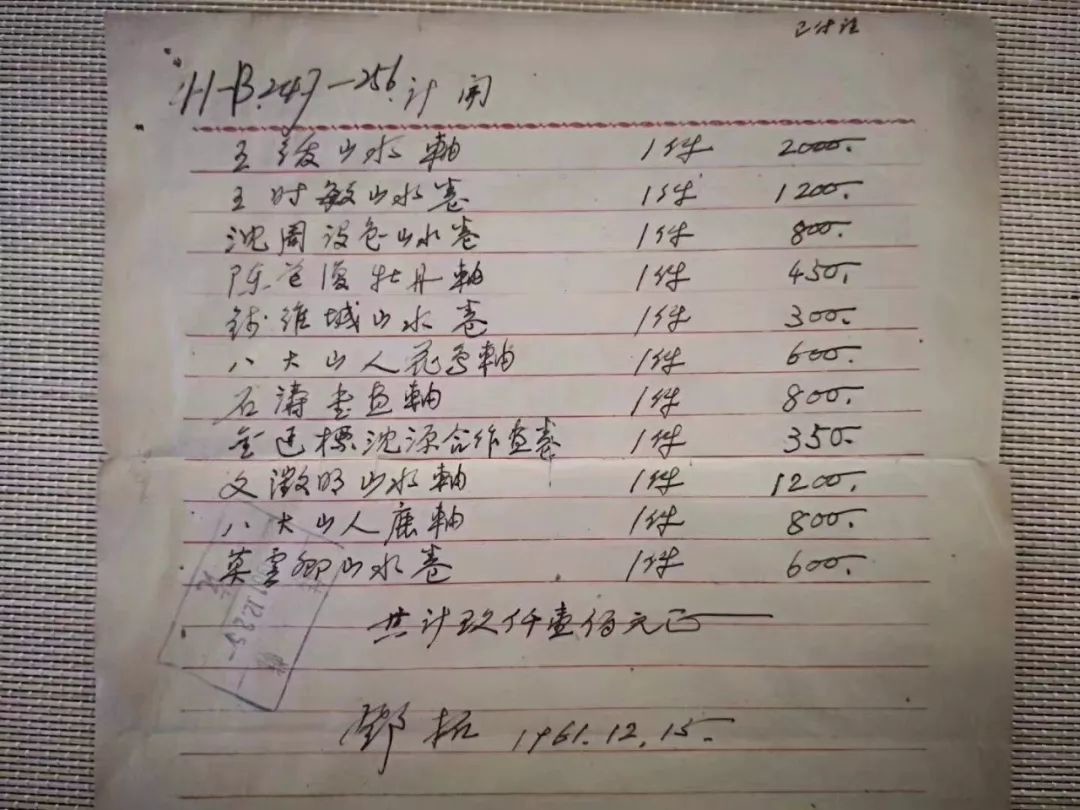 已付
H-B.247-256. 计开
王绂山水軸 1件 2000.
王时敏山水卷 1件 1200.
沈周设色山水卷 1件 800.
陈道復牡丹軸 1件 450.
钱維城山水卷 1件 300.
八大山人花鸟軸 1件 600.
石濤書画軸 1件 800.
金廷標沈源合作画卷 1件 350.
文徵明山水軸 1件 1200.
八大山人鹿軸 1件 800.
莫雲卿山水卷 1件 600.
共计玖仟壹佰元正
鄧拓 1961.12.15.